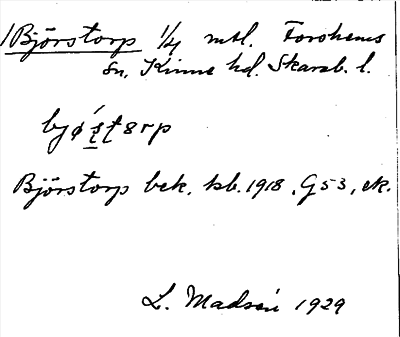 Björstorp 1/4 mtl. Forshems
sn, Kinne hd. Skarab. l.
byǿʂʈ8rp
Björstorp bek. kb. 1918, G53, ek.
L. Madsén 1929